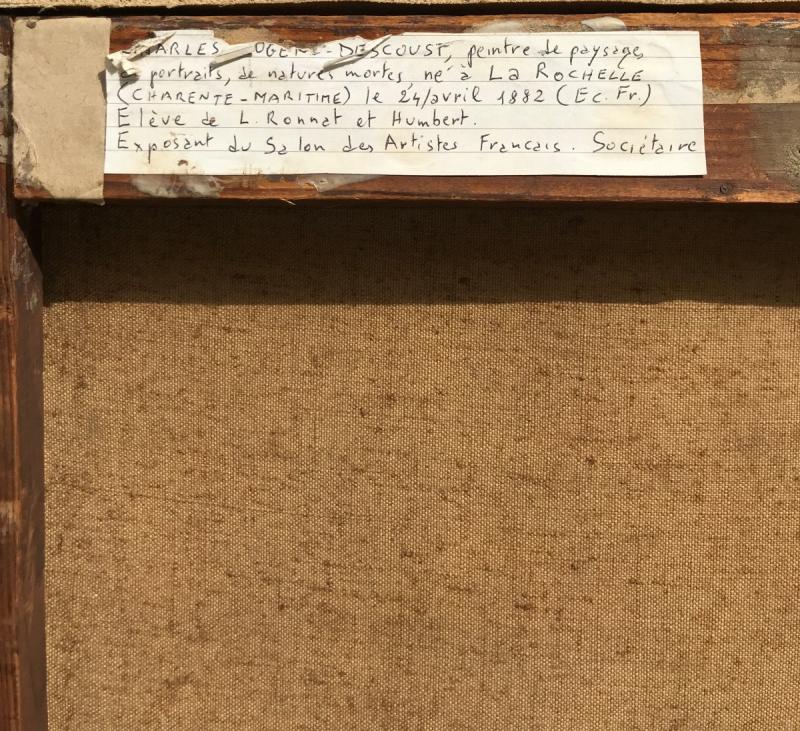 CHARLES DESCOUST, peintre de paysage,
portraits, de natures mortes, né à LA ROCHELLE
(CHARENTE-MARITIME) le 24/avril 1882 (Ec. Fr.)
Elève de L. Ronnat et Humbert.
Exposant du Salon des Artistes Francais. Sociétaire